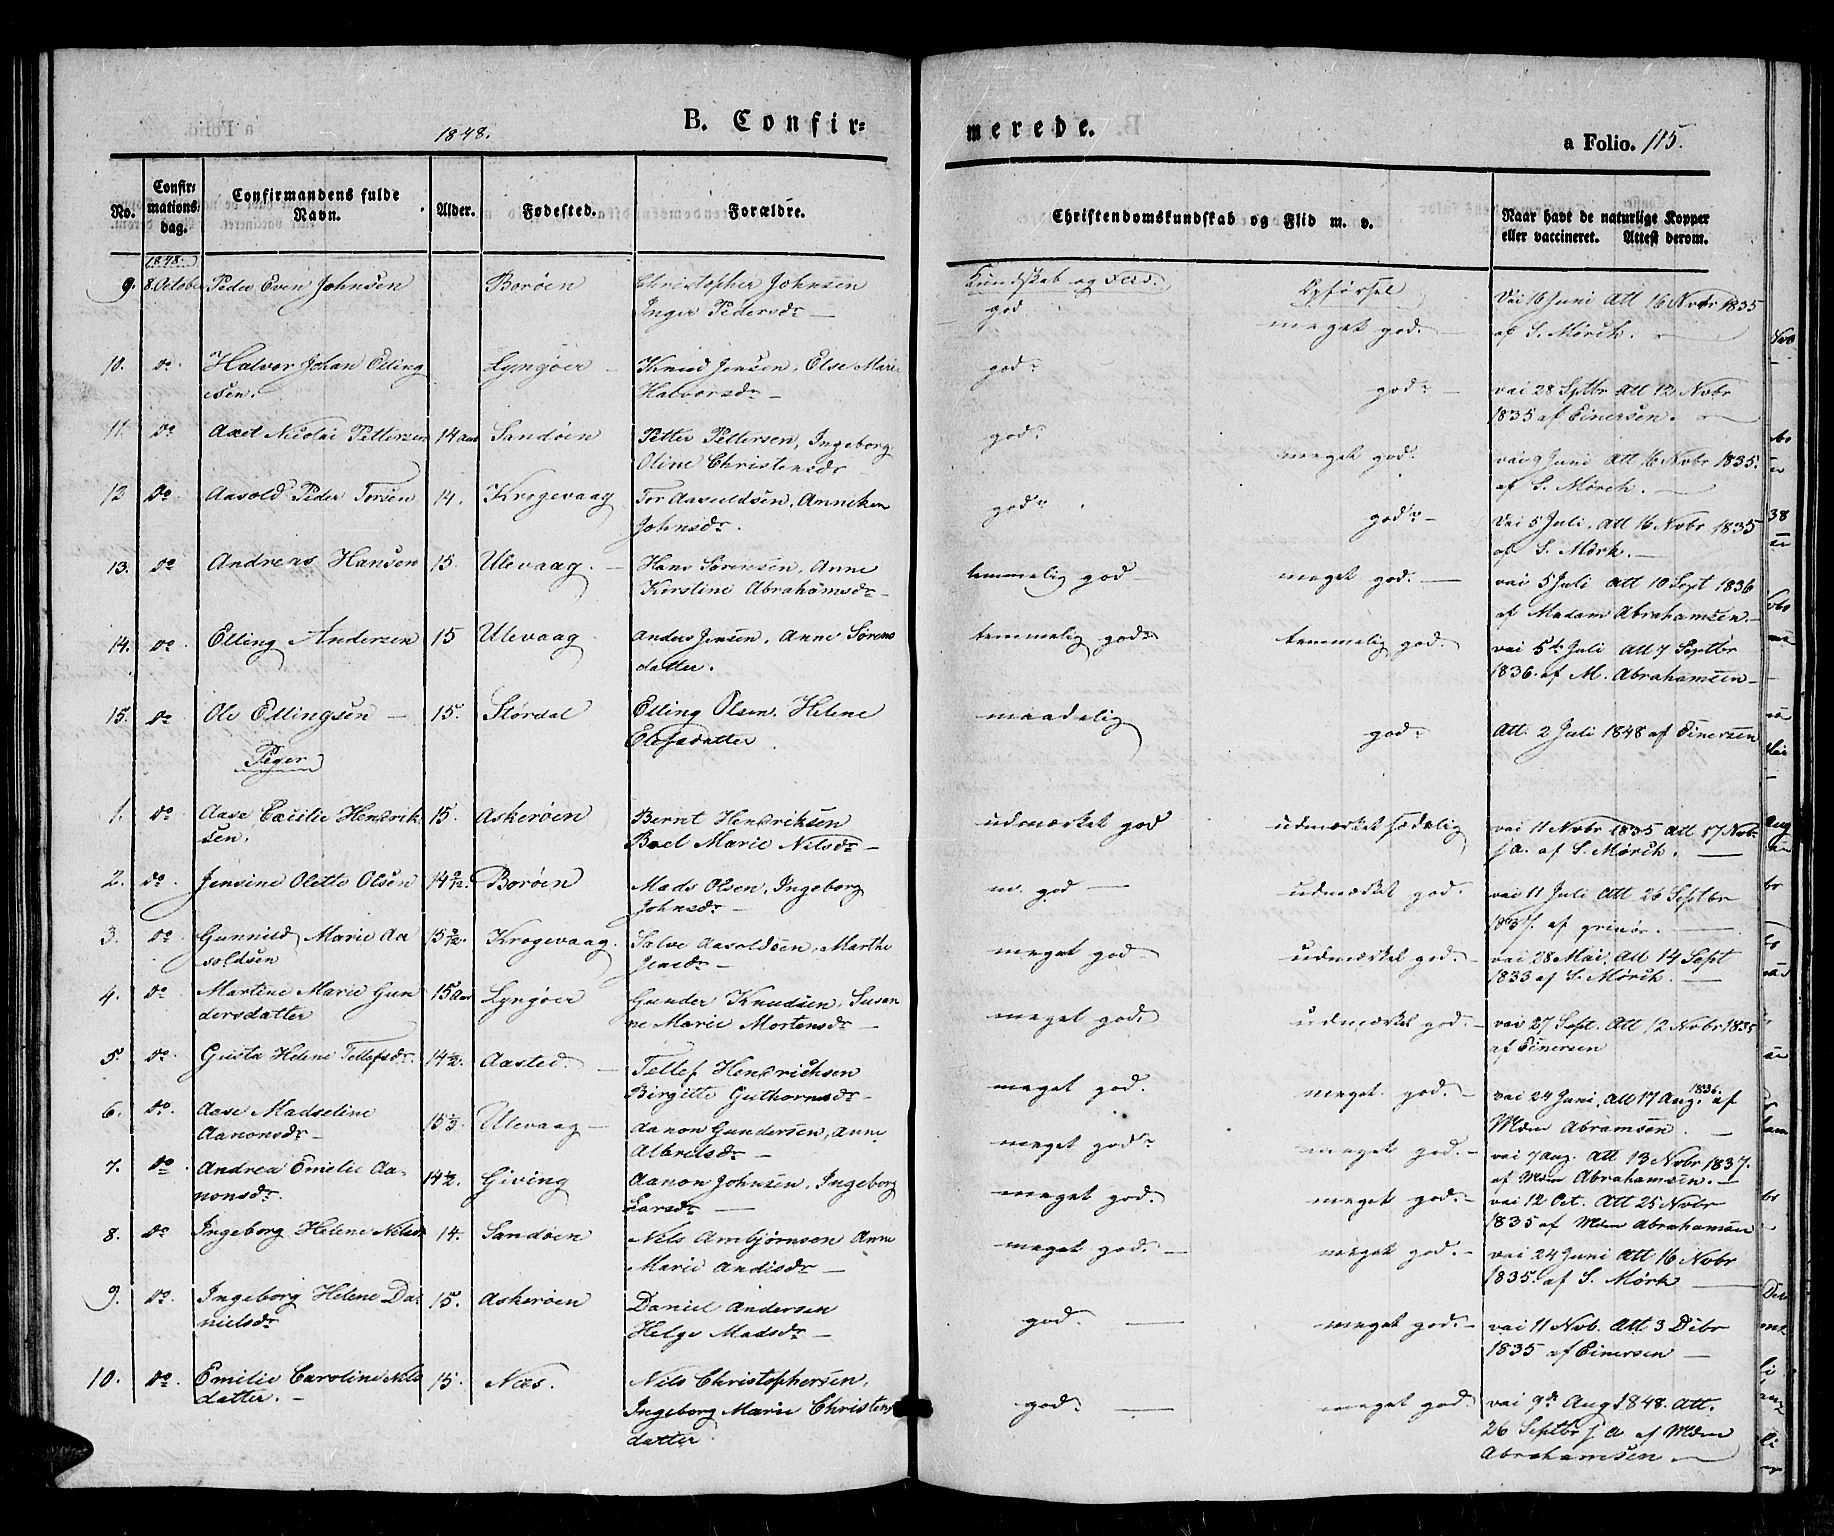 1848.
B. Confir=
merede.
a Folio. 115.
No.
Confir:
mations:
dag.
Confirmandens fulde
Navn.
Alder.
Fødested.
Forældre.
Christendomskundskab og Flid m. v.
Naar havt de naturlige Kopper
eller vaccineret. Attest derom.
1848.
Kundskab og
Opførsel
9. 8. Octobe Peder Even Johnsen Borøen Christopher Johnsen god meget god. Vai 16 Juni Att 16 Novbr 1835
Inger Pedersdr — af S. Mørch. —
10. do Halvor Johan Elling Lyngøer — Knud Jensen, Else Marie god. god. vai 28 Septbr Att 12 Novbr
sen. Halvorsdr — 1835 af Einersen. —
11. do Axel Nicolai Pettersen 14 aar Sandøen Petter Pettersen, Ingeborg god. meget god. vai 9 Juni Att 16 Novbr 1835.
Oline Christensdr af S. Mørch. —
12 do Aasold Peder Torsen 14. Krogevaag Tor Aasuldsen, Anniken god. god. — Vai 5 Juli, Att 16 Novbr 1835
Johnsdr. af S. Mørk. —
13. do Andreas Hansen 15. Ulevaag. — Hans Sørensen, Anne temmelig god — meget god. — vai 5 Juli Att 10 Sept 1836
Kirstine Abrahamsdr — af Madam Abrahamsen. —
14. do Elling Andersen 15 Ulevaag. Anders Jensen, Anne Sørens temmelig god. temmelig god. vai 5te Juli Att 7 Septbr
datter. 1836. af M. Abrahamsen —
15. do Ole Ellingsen — 15. Størdal Elling Olsen, Helene maadelig god. Att. 2 Juli 1848 af Einersen
Elefsdatter.
Piger
1. do Aase Cæcilie Hendrik 15. Askerøen Bernt Hendriksen udmærket god udmærket sædelig vai 11 Novbr 1835 Att 17 Novbr
sen. Boel Marie Nilsdr — s. A. af S. Mørch. —
2. do Jensine Olette Olsen 14 1/2. Borøen Mads Olsen, Ingeborg m. god — udmærket god. vai 11 Juli Att 26 Septbr
Johnsdr — 1837. af
3. do Gunnild Marie Aa 15 1/2. Krogevaag. Salve Aasoldsen, Marthe meget god — udmærket god. — vai 28 Mai, Att 14 Sept
soldsen Jensdr — 1833 af S. Mørch. —
4. do Martine Marie Gun 15 Aar Lyngøer Gunder Knudsen, Susan meget god. udmærket god. — vai 27 Sept. Att 12 Novbr 1835
dersdatter ne Marie Mortensdr — af Einersen
5. do Gusta Helene Tellefsdr. 14 1/2. Aasted. — Tellef Hendrichsen meget god. meget god. — vai 24 Juni, Att 17 Aug. 1836. af
Birgitte Guthormsdr — Mdm Abramsen. —
6. do Aase Madseline 15 1/2. Ulevaag — Aanon Gundersen, Anne meget god. meget god. — vai 7 Aug. Att 13 Novbr 1837.
Aanonsdr — Albretsdr — af Mdm Abrahamsen. —
7. do Andrea Emilie Aa- 14 1/2. Giving Aanon Johnsen, Ingeborg meget god. meget god. — vai 12 Oct. Att 25 Novbr
nonsdr. Larsdr — 1835 af Mdm Abrahamsen
8. do Ingeborg Helene Nilsdr 14. Sandøen Nils Ambjørnsen Anne meget god. — meget god. — vai 24 Juni Att 16 Novbr
Marie Andisdr — 1835. af S. Mørk —
9. do Ingeborg Helene Da- 15. Askerøen Daniel Andersen god. — meget god. — vai 11 Nov. Att 3 Dcbr
nielsdr. Helge Madsdr — 1835 af Einersen —
10. do Emilie Caroline Nils 15. Næs. Nils Christophersen, god. — meget god. vai 9de Aug 1848. Att.
datter. — Ingeborg Marie Christens 26 Septbr s. A af Mdm
datter. Abrahamsen —